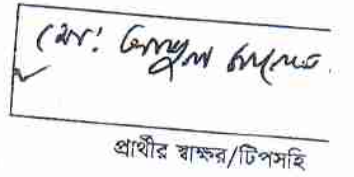 মো: আব্দুল
প্রার্থীর স্বাক্ষর/টিপসহি